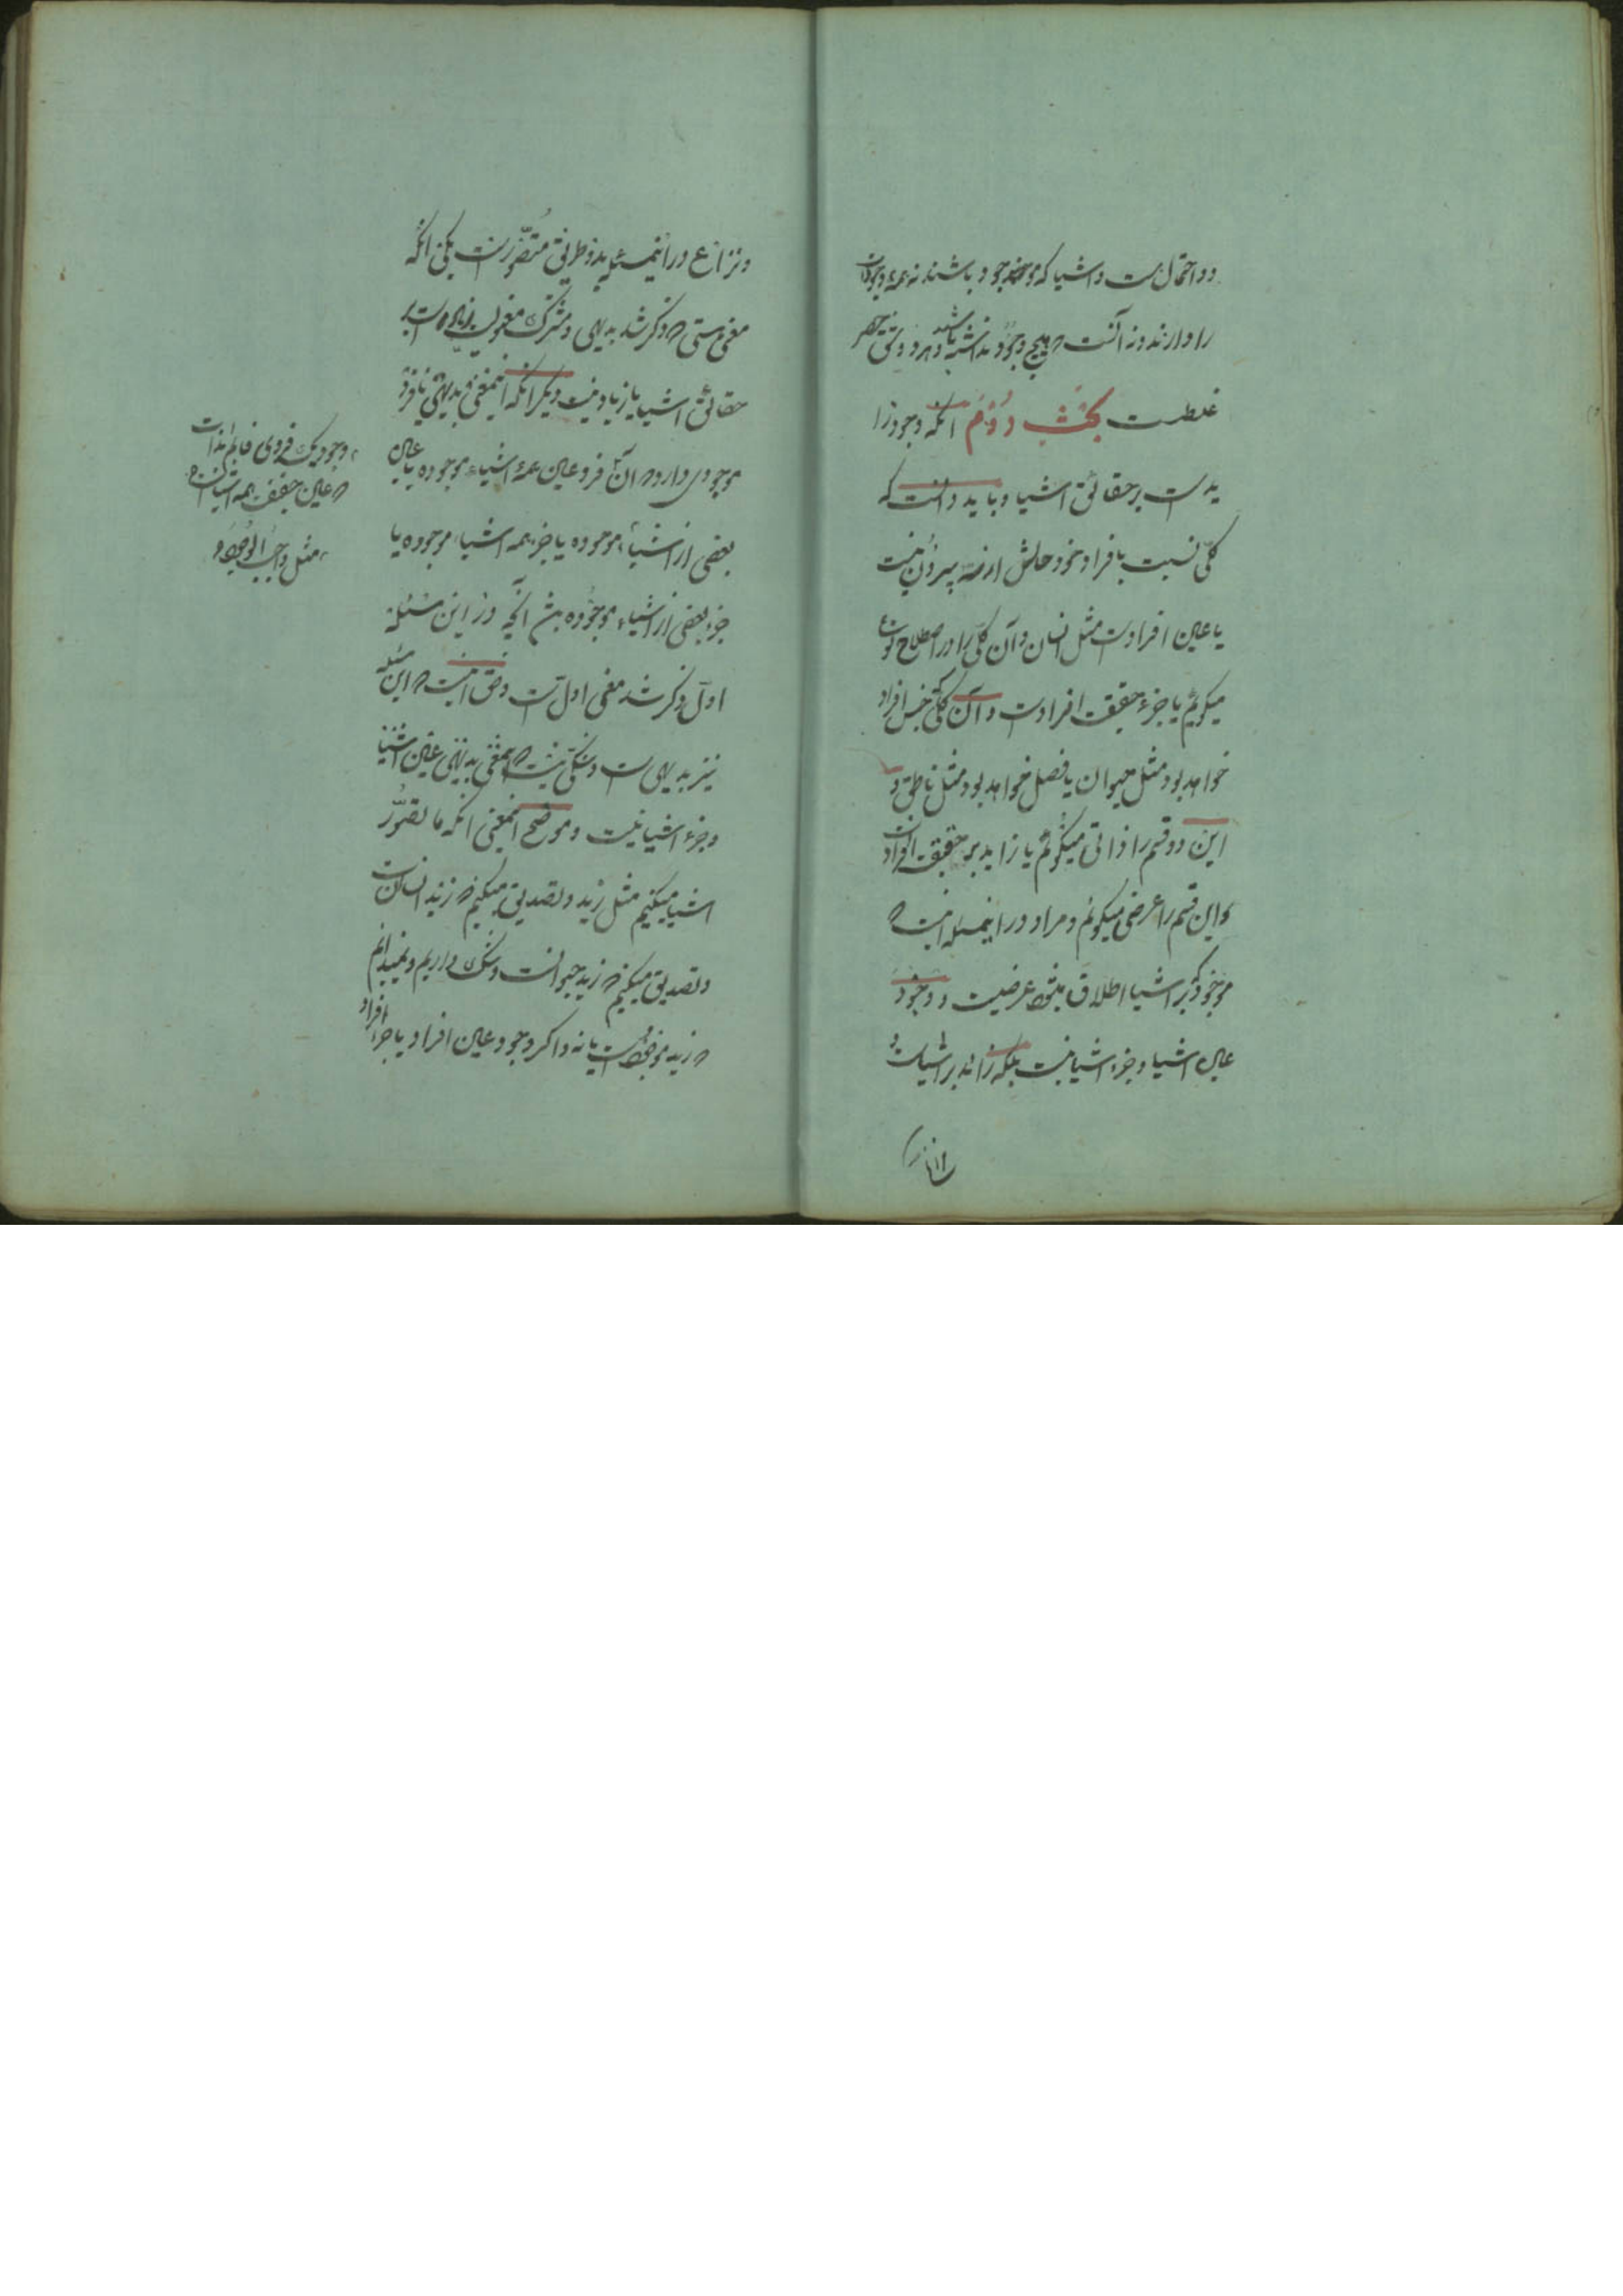 دو احتمال است و اشیا که موجود باشند نه همه وجودات
را دارند و نه آنست که هیچ وجود نداشته باشد و هر دو شق حصر
غلطست بحث دوم آنکه وجود زا
ید است بر حقائق اشیا و باید دانست که
کلّی نسبت بافراد خود حالش از سه بیرون نیست
یا عین افرادست مثل انسان و آن کلّی را در اصطلاح نوع
میگویم یا جزء حقیقت افرادست و آن کلّی جنس افراد
خواهد بود مثل حیوان یا فصل خواهد بود مثل ناطق و
این دو قسم را ذاتی میگویم یا زاید بر حقیقت افرادست
و این قسم را عرضی میگویم و مراد در اینمسئله اینست که
موجود که بر اشیا اطلاق میشود عرضیست و وجود
عین اشیا و جزء اشیا نیست بلکه زائد بر اشیاست و
و نزاع در اینمسئله بدو طریق متصوّرست یکی آنکه
معنی هستی که ذکر شد بدیهی و مشترک معنوی زیادست بر
حقائق اشیا یا زیاد نیست دیگر آنکه اینمعنی بدیهی یا فرد
موجودی دارد که آن فرد عین همه اشیاء موجوده یا عین
بعضی از اشیاء موجوده یا جزء همه اشیاء موجوده یا
جزء بعضی از اشیاء موجوده باشد آنچه در این مسئله
اول ذکر شد معنی اول است و حق اینست که این مسئله
نیز بدیهی است و شکّی نیست که اینمعنی بدیهی عین اشیا
و جزء اشیا نیست و موضح اینمعنی آنکه ما تصوّر
اشیا میکنیم مثل زید و تصدیق میکنیم که زید انسان است
و تصدیق میکنیم که زید حیوانست و شک داریم و نمیدانیم
که زید موجود است یا نه و اگر وجود عین افراد یا جزء افراد
وجود یک فردی قائم بذات
که عین حقیقت همه اشیا
مثل واجب الوجود